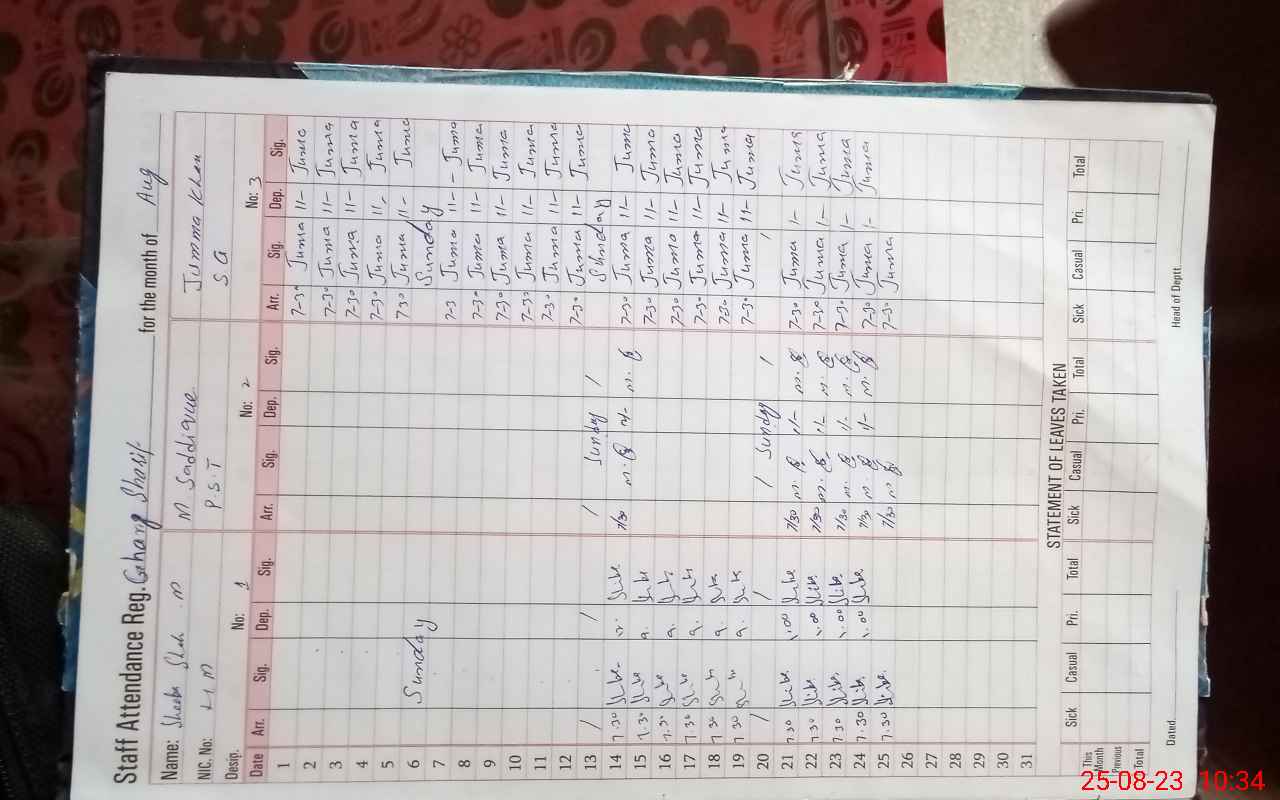 Staff Attendance Reg. Ghang Sharif for the month of Aug
Name: Sheeba Shah . M M Saddique Jumma Khan
NIC. No: H M P.S.T S G
Desig. No: 1 No: 2 No: 3
Date Arr. Sig. Dep. Sig. Arr. Sig. Dep. Sig. Arr. Sig. Dep. Sig.
1 7-30 Juma 11- Juma
2 7-30 Juma 11- Juma
3 7-30 Juma 11- Juma
4 7-30 Juma 11- Juma
5 7-30 Juma 11- Juma
6 Sunday Sunday
7 7-3 Juma 11- - Juma
8 7-30 Juma 11- Juma
9 7-30 Juma 11- Juma
10 7-30 Juma 11- Juma
11 7-30 Juma 11- Juma
12 7-30 Juma 11- Juma
13 / / / Sunday / Sunday
14 7.30 7/30 M. M. 7-30 Juma 11- Juma
15 7.30 7-30 Juma 11- Juma
16 7.30 7-30 Juma 11- Juma
17 7.30 7-30 Juma 11- Juma
18 7.30 7-30 Juma 11- Juma
19 7.30 7-30 Juma 11- Juma
20 / / / Sunday / /
21 7.30 1.00 7/30 M. 1/- M. 7-30 Juma 1- Juma
22 7.30 1.00 7/30 M. 1/- M. 7-30 Juma 1- Juma
23 7.30 1.00 7/30 M. 1/- M. 7-30 Juma 1- Juma
24 7.30 1.00 7/30 M. 1/- M. 7-30 Juma 1- Juma
25 7.30 7/30 M 7-30 Juma
26
27
28
29
30
31
STATEMENT OF LEAVES TAKEN
Sick Casual Pri. Total Sick Casual Pri. Total Sick Casual Pri. Total
This Month
Previous
Total
Dated Head of Deptt.
25-08-23 10:34